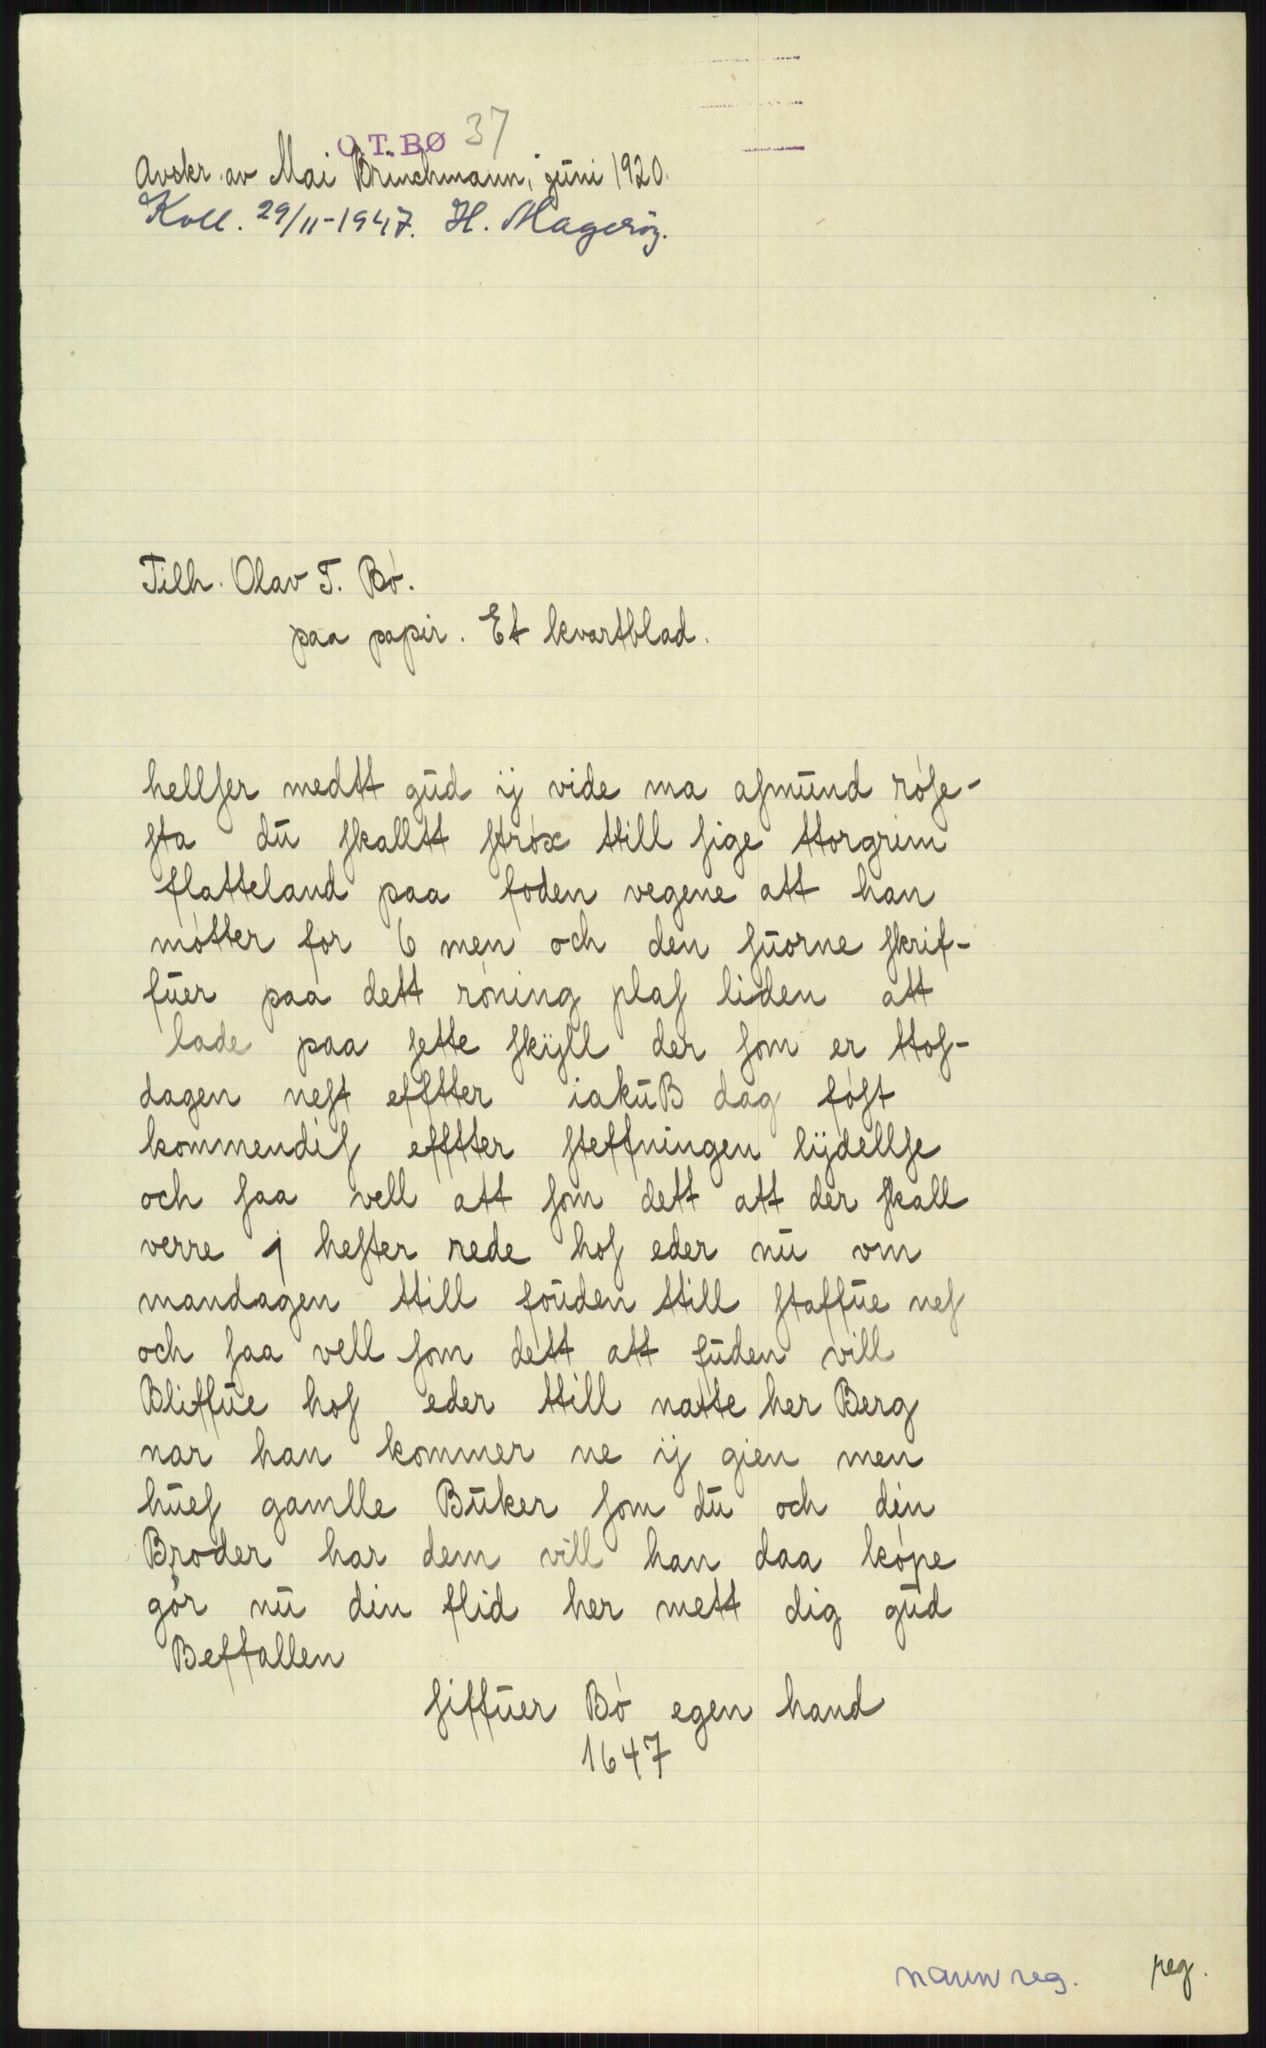 O.T.BØ 37
Avskr. av Mai Brinchmann, juni 1920.
Koll. 29/11-1947. H. Magerøy.
Tilh. Olav T. Bø.
paa papir. Et kvartblad.
hellſer medtt gud ij vide ma aſmund röſe-
ſta du ſkalltt ſtröx till ſige ttorgrim
flatteland paa foden vegene att han
mötter for 6 men och den ſuorne ſkrif-
fuer paa dett röning plaſ liden att
lade paa ſette ſkÿll der ſom er ttoſ-
dagen neſt efftter iakuB dag föſt
kommendiſ efftter ſteffningen lÿdellſe
och ſaa vell att ſom dett att der ſkall
verre 1 heſter rede hoſ eder nu om
mandagen ttill fouden ttill ſtaffue neſ
och ſaa vell ſom dett att fuden vill
Bliffue hoſ eder ttill natte her Berg
nar han kommer ne ij gien men
hueſ gamlle Buker ſom du och din
Broder har dem vill han daa köpe
gör nu din flid her mett dig gud
Beffallen
ſiffuer Bö egen hand
1647
navnreg. reg.